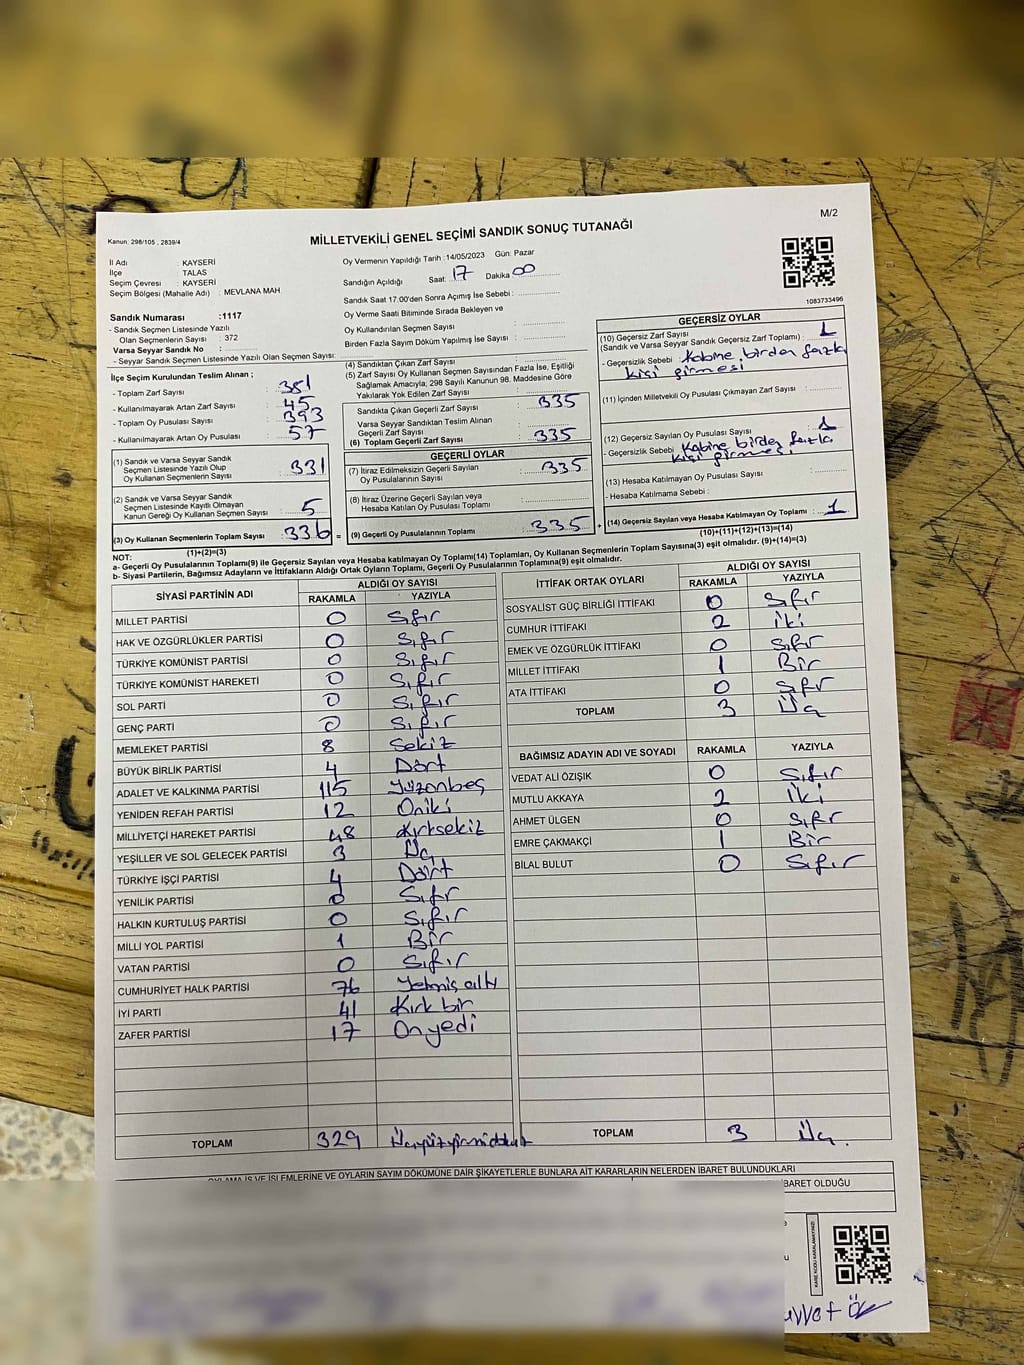 M/2
Kanun, 298/105 , 2839/4
MİLLETVEKİLİ GENEL SEÇİMİ SANDIK SONUÇ TUTANAĞI
İl Adı : KAYSERİ
İlçe : TALAS
Seçim Çevresi : KAYSERİ
Seçim Bölgesi (Mahalle Adı) : MEVLANA MAH
Sandık Numarası :1117
- Sandık Seçmen Listesinde Yazılı
Olan Seçmenlerin Sayısı : 372
Varsa Seyyar Sandık No :
- Seyyar Sandık Seçmen Listesinde Yazılı Olan Seçmen Sayısı:
Oy Vermenin Yapıldığı Tarih :14/05/2023 Gün: Pazar
Sandığın Açıldığı Saat: 17 Dakika 00
Sandık Saat 17.00'den Sonra Açmış İse Sebebi :
Oy Verme Saati Bitiminde Sırada Bekleyen ve
Oy Kullandırılan Seçmen Sayısı :
Birden Fazla Sayım Döküm Yapılmış İse Sayısı :
1083733496
İlçe Seçim Kurulundan Teslim Alınan ;
- Toplam Zarf Sayısı : 381
- Kullanılmayarak Artan Zarf Sayısı : 45
- Toplam Oy Pusulası Sayısı : 393
- Kullanılmayarak Artan Oy Pusulası : 57
(1) Sandık ve Varsa Seyyar Sandık
Seçmen Listesinde Yazılı Olup
Oy Kullanan Seçmenlerin Sayısı : 331
(2) Sandık ve Varsa Seyyar Sandık
Seçmen Listesinde Kayıtlı Olmayan
Kanun Gereği Oy Kullanan Seçmen Sayısı : 5
(3) Oy Kullanan Seçmenlerin Toplam Sayısı : 336 =
(1)+(2)=(3)
(4) Sandıktan Çıkan Zarf Sayısı :
(5) Zarf Sayısı Oy Kullanan Seçmen Sayısından Fazla İse, Eşitliği
Sağlamak Amacıyla, 298 Sayılı Kanunun 98. Maddesine Göre
Yakılarak Yok Edilen Zarf Sayısı :
Sandıkta Çıkan Geçerli Zarf Sayısı : 335
Varsa Seyyar Sandıktan Teslim Alınan
Geçerli Zarf Sayısı :
(6) Toplam Geçerli Zarf Sayısı : 335
GEÇERLİ OYLAR
(7) İtiraz Edilmeksizin Geçerli Sayılan
Oy Pusulasının Sayısı : 335
(8) İtiraz Üzerine Geçerli Sayılan veya
Hesaba Katılan Oy Pusulası Toplamı :
(9) Geçerli Oy Pusulalarının Toplamı : 335 +
GEÇERSİZ OYLAR
(10) Geçersiz Zarf Sayısı
(Sandık ve Varsa Seyyar Sandık Geçersiz Zarf Toplamı) : 1
- Geçersizlik Sebebi : Kabine birden fazla
kişi girmesi
(11) İçinden Milletvekili Oy Pusulası Çıkmayan Zarf Sayısı :
(12) Geçersiz Sayılan Oy Pusulası Sayısı : 1
- Geçersizlik Sebebi : Kabine birden fazla
kişi girmesi
(13) Hesaba Katılmayan Oy Pusulası Sayısı :
- Hesaba Katılmama Sebebi :
(14) Geçersiz Sayılan veya Hesaba Katılmayan Oy Toplamı : 1
(10)+(11)+(12)+(13)=(14)
NOT:
a- Geçerli Oy Pusulalarının Toplamı(9) ile Geçersiz Sayılan veya Hesaba katılmayan Oy Toplamı(14) Toplamları, Oy Kullanan Seçmenlerin Toplam Sayısına(3) eşit olmalıdır. (9)+(14)=(3)
b- Siyasi Partilerin, Bağımsız Adayların ve İttifakların Aldığı Ortak Oyların Toplamı, Geçerli Oy Pusulalarının Toplamına(9) eşit olmalıdır.
SİYASİ PARTİNİN ADI ALDIĞI OY SAYISI
RAKAMLA YAZIYLA
MİLLET PARTİSİ 0 Sıfır
HAK VE ÖZGÜRLÜKLER PARTİSİ 0 Sıfır
TÜRKİYE KOMÜNİST PARTİSİ 0 Sıfır
TÜRKİYE KOMÜNİST HAREKETİ 0 Sıfır
SOL PARTİ 0 Sıfır
GENÇ PARTİ 0 Sıfır
MEMLEKET PARTİSİ 8 Sekiz
BÜYÜK BİRLİK PARTİSİ 4 Dört
ADALET VE KALKINMA PARTİSİ 115 Yüzonbeş
YENİDEN REFAH PARTİSİ 12 Oniki
MİLLİYETÇİ HAREKET PARTİSİ 48 Kırksekiz
YEŞİLLER VE SOL GELECEK PARTİSİ 3 Üç
TÜRKİYE İŞÇİ PARTİSİ 4 Dört
YENİLİK PARTİSİ 0 Sıfır
HALKIN KURTULUŞ PARTİSİ 0 Sıfır
MİLLİ YOL PARTİSİ 1 Bir
VATAN PARTİSİ 0 Sıfır
CUMHURİYET HALK PARTİSİ 76 Yetmiş altı
İYİ PARTİ 41 Kırk bir
ZAFER PARTİSİ 17 On yedi
TOPLAM 329 Üçyüzyirmidokuz
İTTİFAK ORTAK OYLARI ALDIĞI OY SAYISI
RAKAMLA YAZIYLA
SOSYALİST GÜÇ BİRLİĞİ İTTİFAKI 0 Sıfır
CUMHUR İTTİFAKI 2 İki
EMEK VE ÖZGÜRLÜK İTTİFAKI 0 Sıfır
MİLLET İTTİFAKI 1 Bir
ATA İTTİFAKI 0 Sıfır
TOPLAM 3 Üç
BAĞIMSIZ ADAYIN ADI VE SOYADI RAKAMLA YAZIYLA
VEDAT ALİ ÖZIŞIK 0 Sıfır
MUTLU AKKAYA 2 İki
AHMET ÜLGEN 0 Sıfır
EMRE ÇAKMAKÇİ 1 Bir
BİLAL BULUT 0 Sıfır
TOPLAM 3 Üç.
OYLAMA İŞ VE İŞLEMLERİNE VE OYLARIN SAYIM DÖKÜMÜNE DAİR ŞİKAYETLERLE BUNLARA AİT KARARLARIN NELERDEN İBARET BULUNDUKLARI
İBARET OLDUĞU
KARE KODU KARALAMAYINIZ!